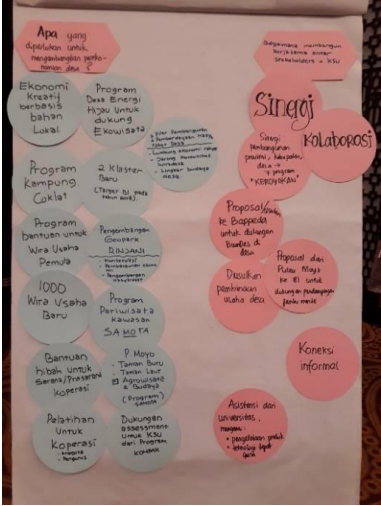 Apa yang
diperlukan untuk
mengembangkan pereko-
nomian desa ?
Ekonomi
Kreatif
berbasis
bahan
Lokal
Program
Desa Energi
Hijau untuk
dukung
Ekowisata
Program
Kampung
Coklat
2 Klaster
Baru
Program
bantuan untuk
Wira Usaha
Pemula
Pengembangan
Geopark
RINJANI
1000
Wira Usaha
Baru
Program
Pariwisata
Kawasan
SAMOTA
Bantuan
hibah untuk
Sarana/Prasarana
Koperasi
P. Moyo
- Taman Buru
- Taman Laut
Agrowisata
& Budaya
(Program)
Pelatihan
Untuk
Koperasi
Dukungan
assessment
Untuk KSU
dari Program
Bagaimana membangun
kerjasama antar
stakeholders - KSU
Sinergi
Sinergi
pembangunan
provinsi, kabupaten,
desa →
program
"KEROYOKAN"
KOLABOROSI
Proposal
ke Bappeda
untuk dukungan
Bumdes di
desa
Diusulkan
pembinaan
usaha desa
Proposal dari
Pulau Moyo
ke BI untuk
dukungan
Koneksi
informal
Asistensi dari
universitas,
mengenai :
• pengolahan produk
• teknologi tepat
guna